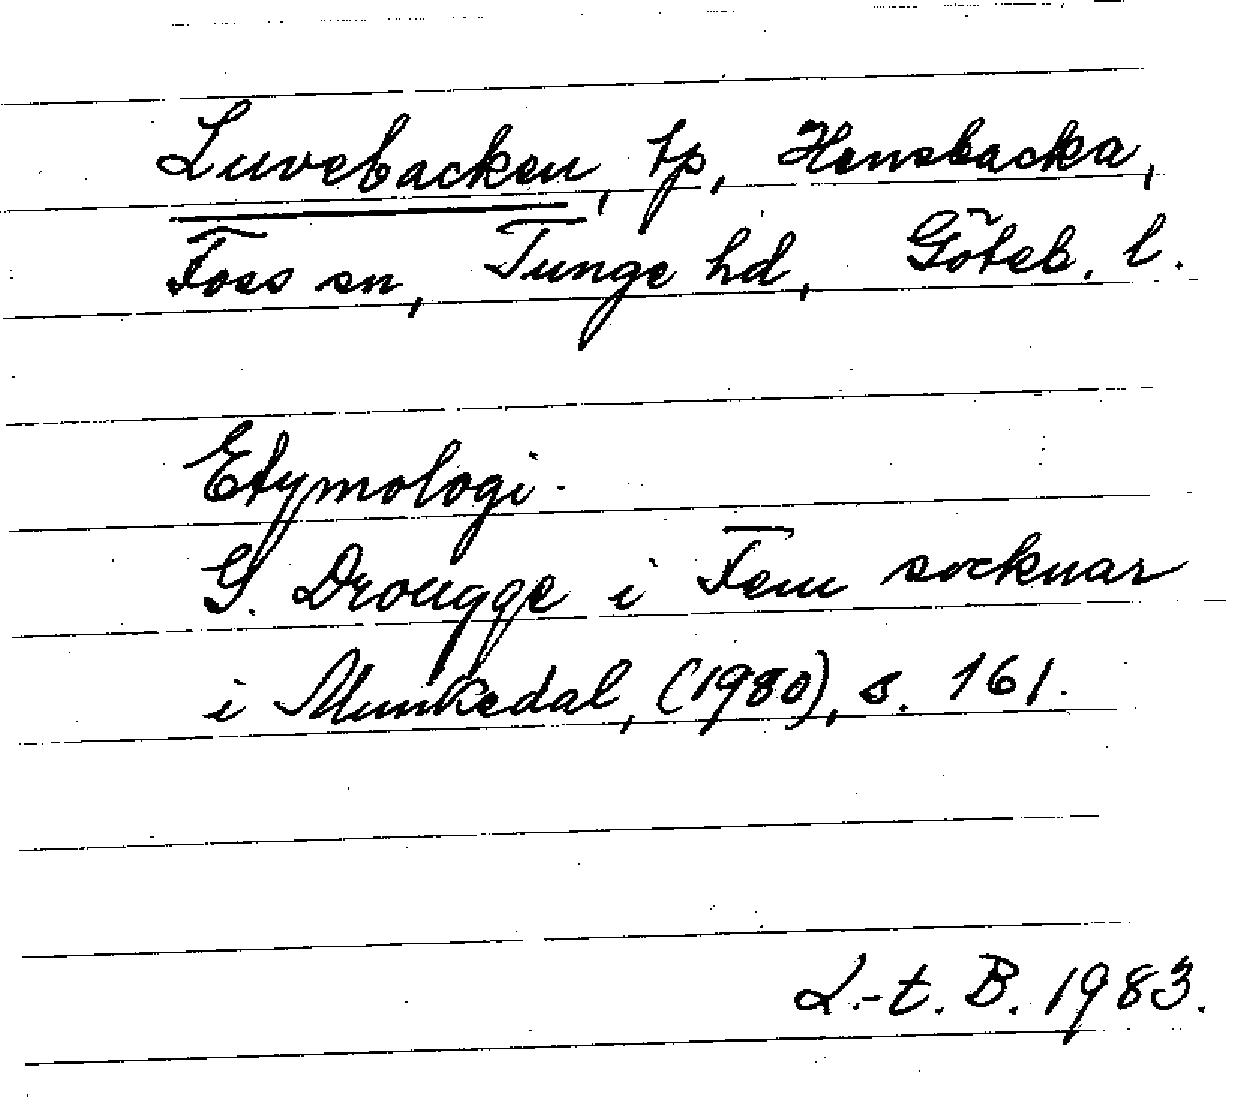 Luvebacken, tp, Hensbacka,
Foss sn, Tunge hd, Göteb. l.
Etymologi.
G. Drougge i Fem socknar
i Munkedal, (1980), s. 161.
L.-t. B. 1983.